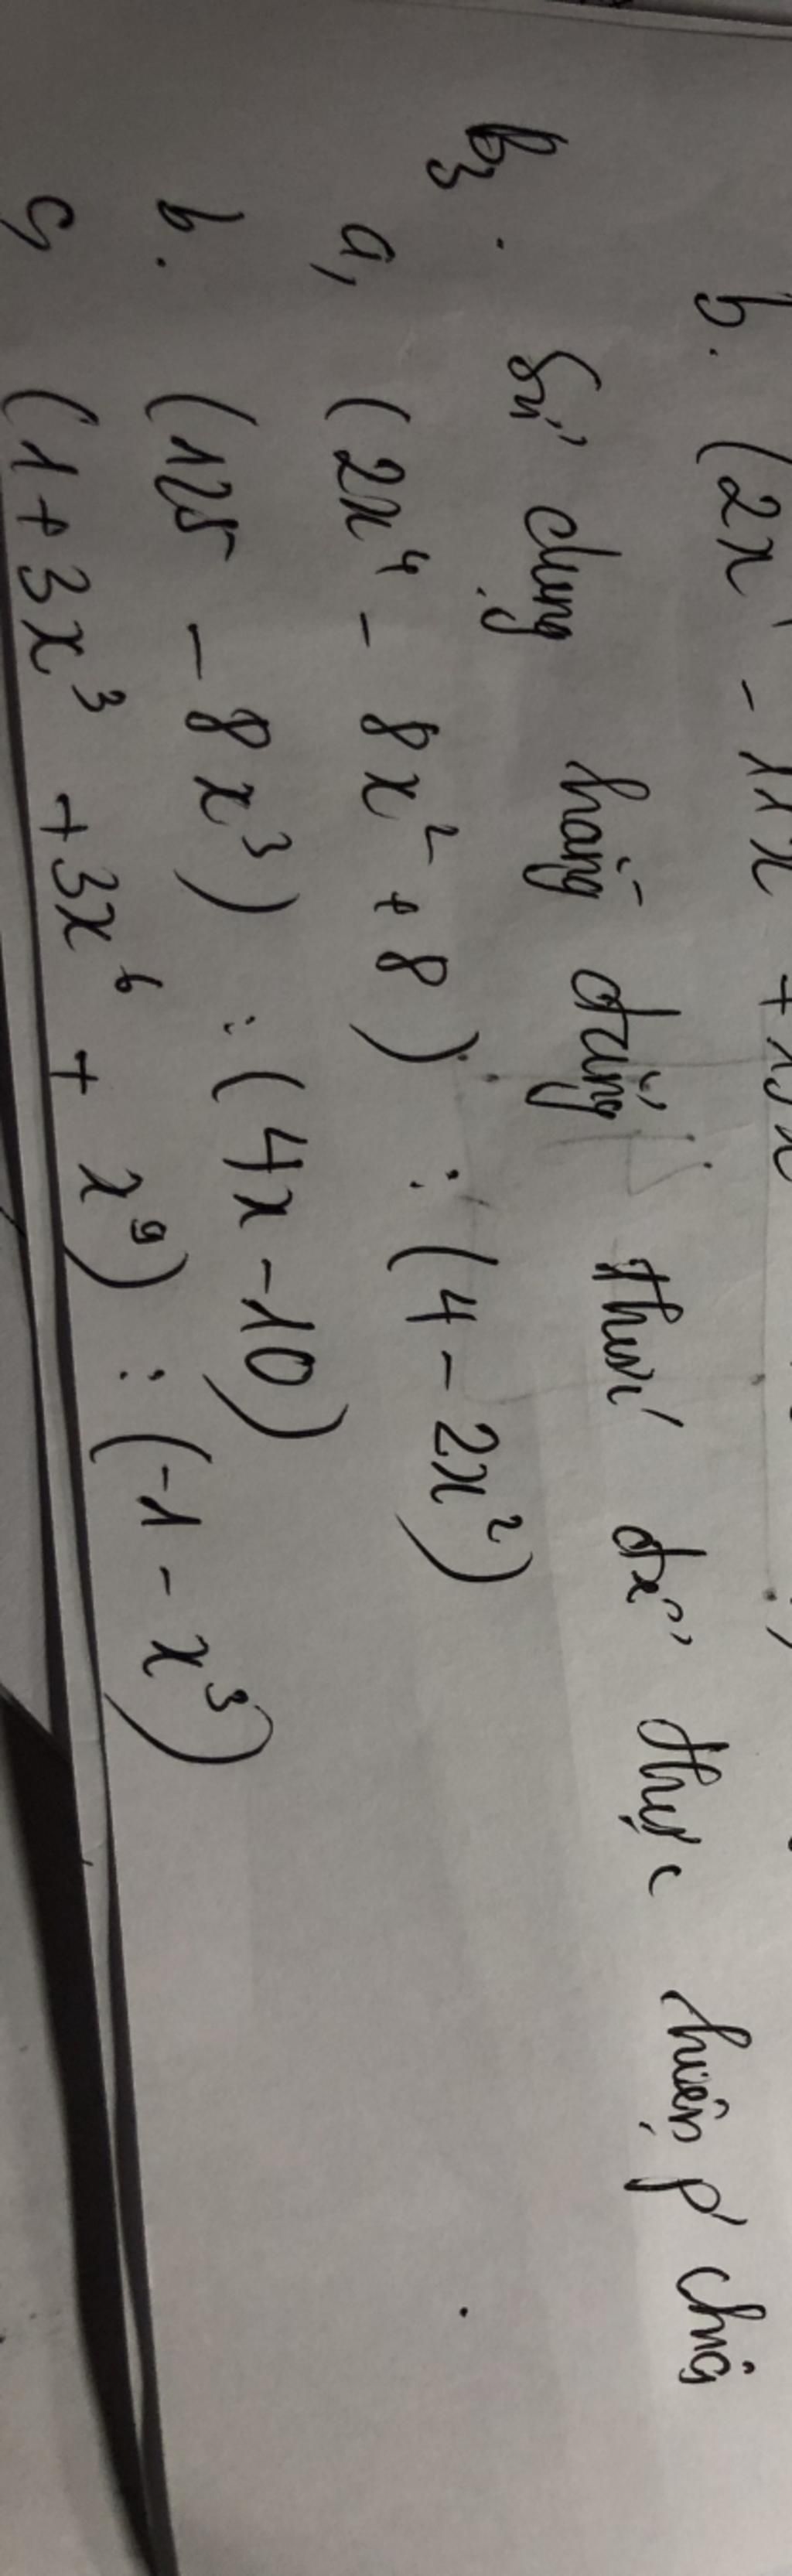 b. (2x - 11x +
B3. Sử dụng hằng đẳng thức để thực hiện p' chia
a, (2x⁴ - 8x² + 8) : (4 - 2x²)
b. (125 - 8x³) : (4x - 10)
c, (1 + 3x³ + 3x⁶ + x⁹) : (-1 - x³)